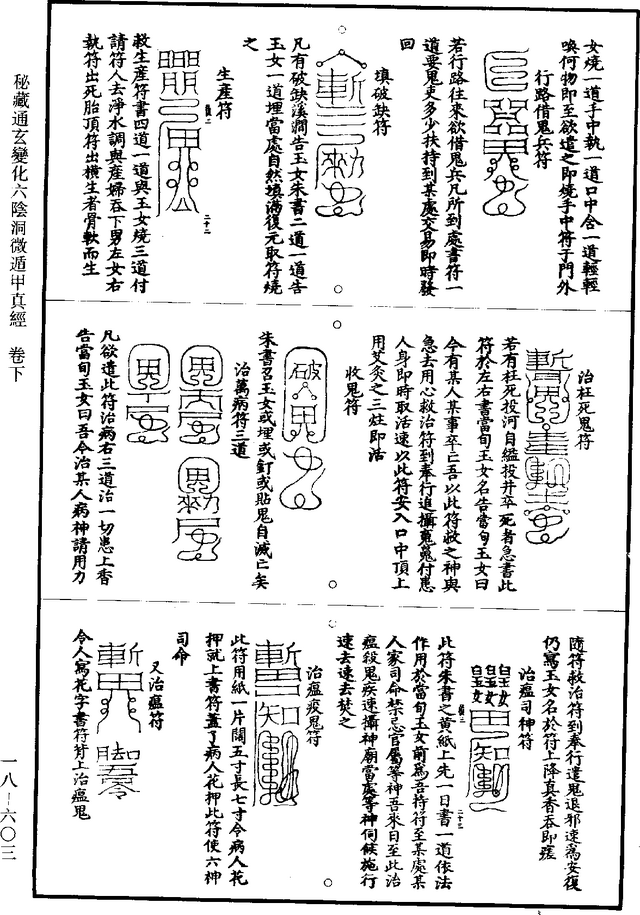 女燒一道手中執一道口中含一道輕輕
喚何物即至欲遣之即燒手中符于門外
行路借鬼兵符
若行路往來欲借鬼兵凡所到處書符一
道要鬼吏多少扶持到某處交易即時發
回
填破缺符
凡有破缺溪澗告玉女朱書二道一道告
玉女一道埋當處自然填滿復元取符燒
之
生產符
救生產符書四道一道與玉女燒三道付
請符人去淨水調與產婦吞下男左女右
執符出死胎頂符出橫生者骨軟而生
治枉死鬼符
若有枉死投河自縊投井卒死者急書此
符於左右書當旬玉女名告當旬玉女曰
今有某人某事卒亡吾以此符救之神與
急去用心救治符到奉行追攝冤鬼付患
人身即時取活速以此符安入口中頂上
用艾灸之三炷即活
收鬼符
朱書召玉女或埋或釘或貼鬼自滅亡矣
治萬病符三道
凡欲遣此符治病右三道治一切患上香
告當旬玉女曰吾今治某人病神請用力
隨符救治符到奉行遣鬼退邪速為安復
仍寫玉女名於符上降真香吞即痊
治瘟司神符
此符朱書之黃紙上先一日書一道依法
作用於當旬玉女前為吾持符至某處某
人家司命禁忌官屬等神吾來日至此治
瘟殺鬼疾速攝神廟當處等神伺候施行
速去速去焚之
治瘟疫鬼符
此符用紙一片闊五寸長七寸令病人花
押就上書符蓋了病人花押此符使六神
司命
又治瘟符
令人寫花字書符背上治瘟鬼
秘藏通玄變化六陰洞微遁甲真經 卷下
一八－六〇三